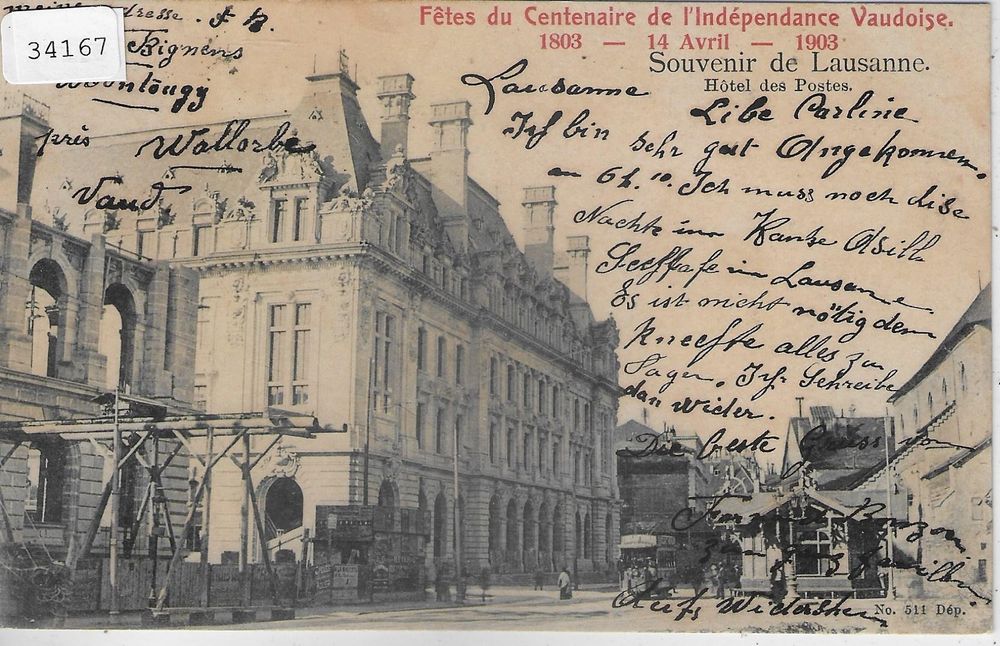 meine Adresse. F. R.
Bignens
34167
près
Wallorbe
Vaud
Fêtes du Centenaire de l'Indépendance Vaudoise.
1803 — 14 Avril — 1903
Souvenir de Lausanne.
Hôtel des Postes.
Lausanne
Libe Carline
Ich bin sehr gut Angekommen.
6 h. 10. Ich muss noch dise
Nachte im
im Lausanne
Es ist nicht nötig dem
Kneeffte alles zu
Sagen. Ich Schreibe
dan Wider.
Die beste Grüss von
Auf Widersehen
No. 511 Dép.